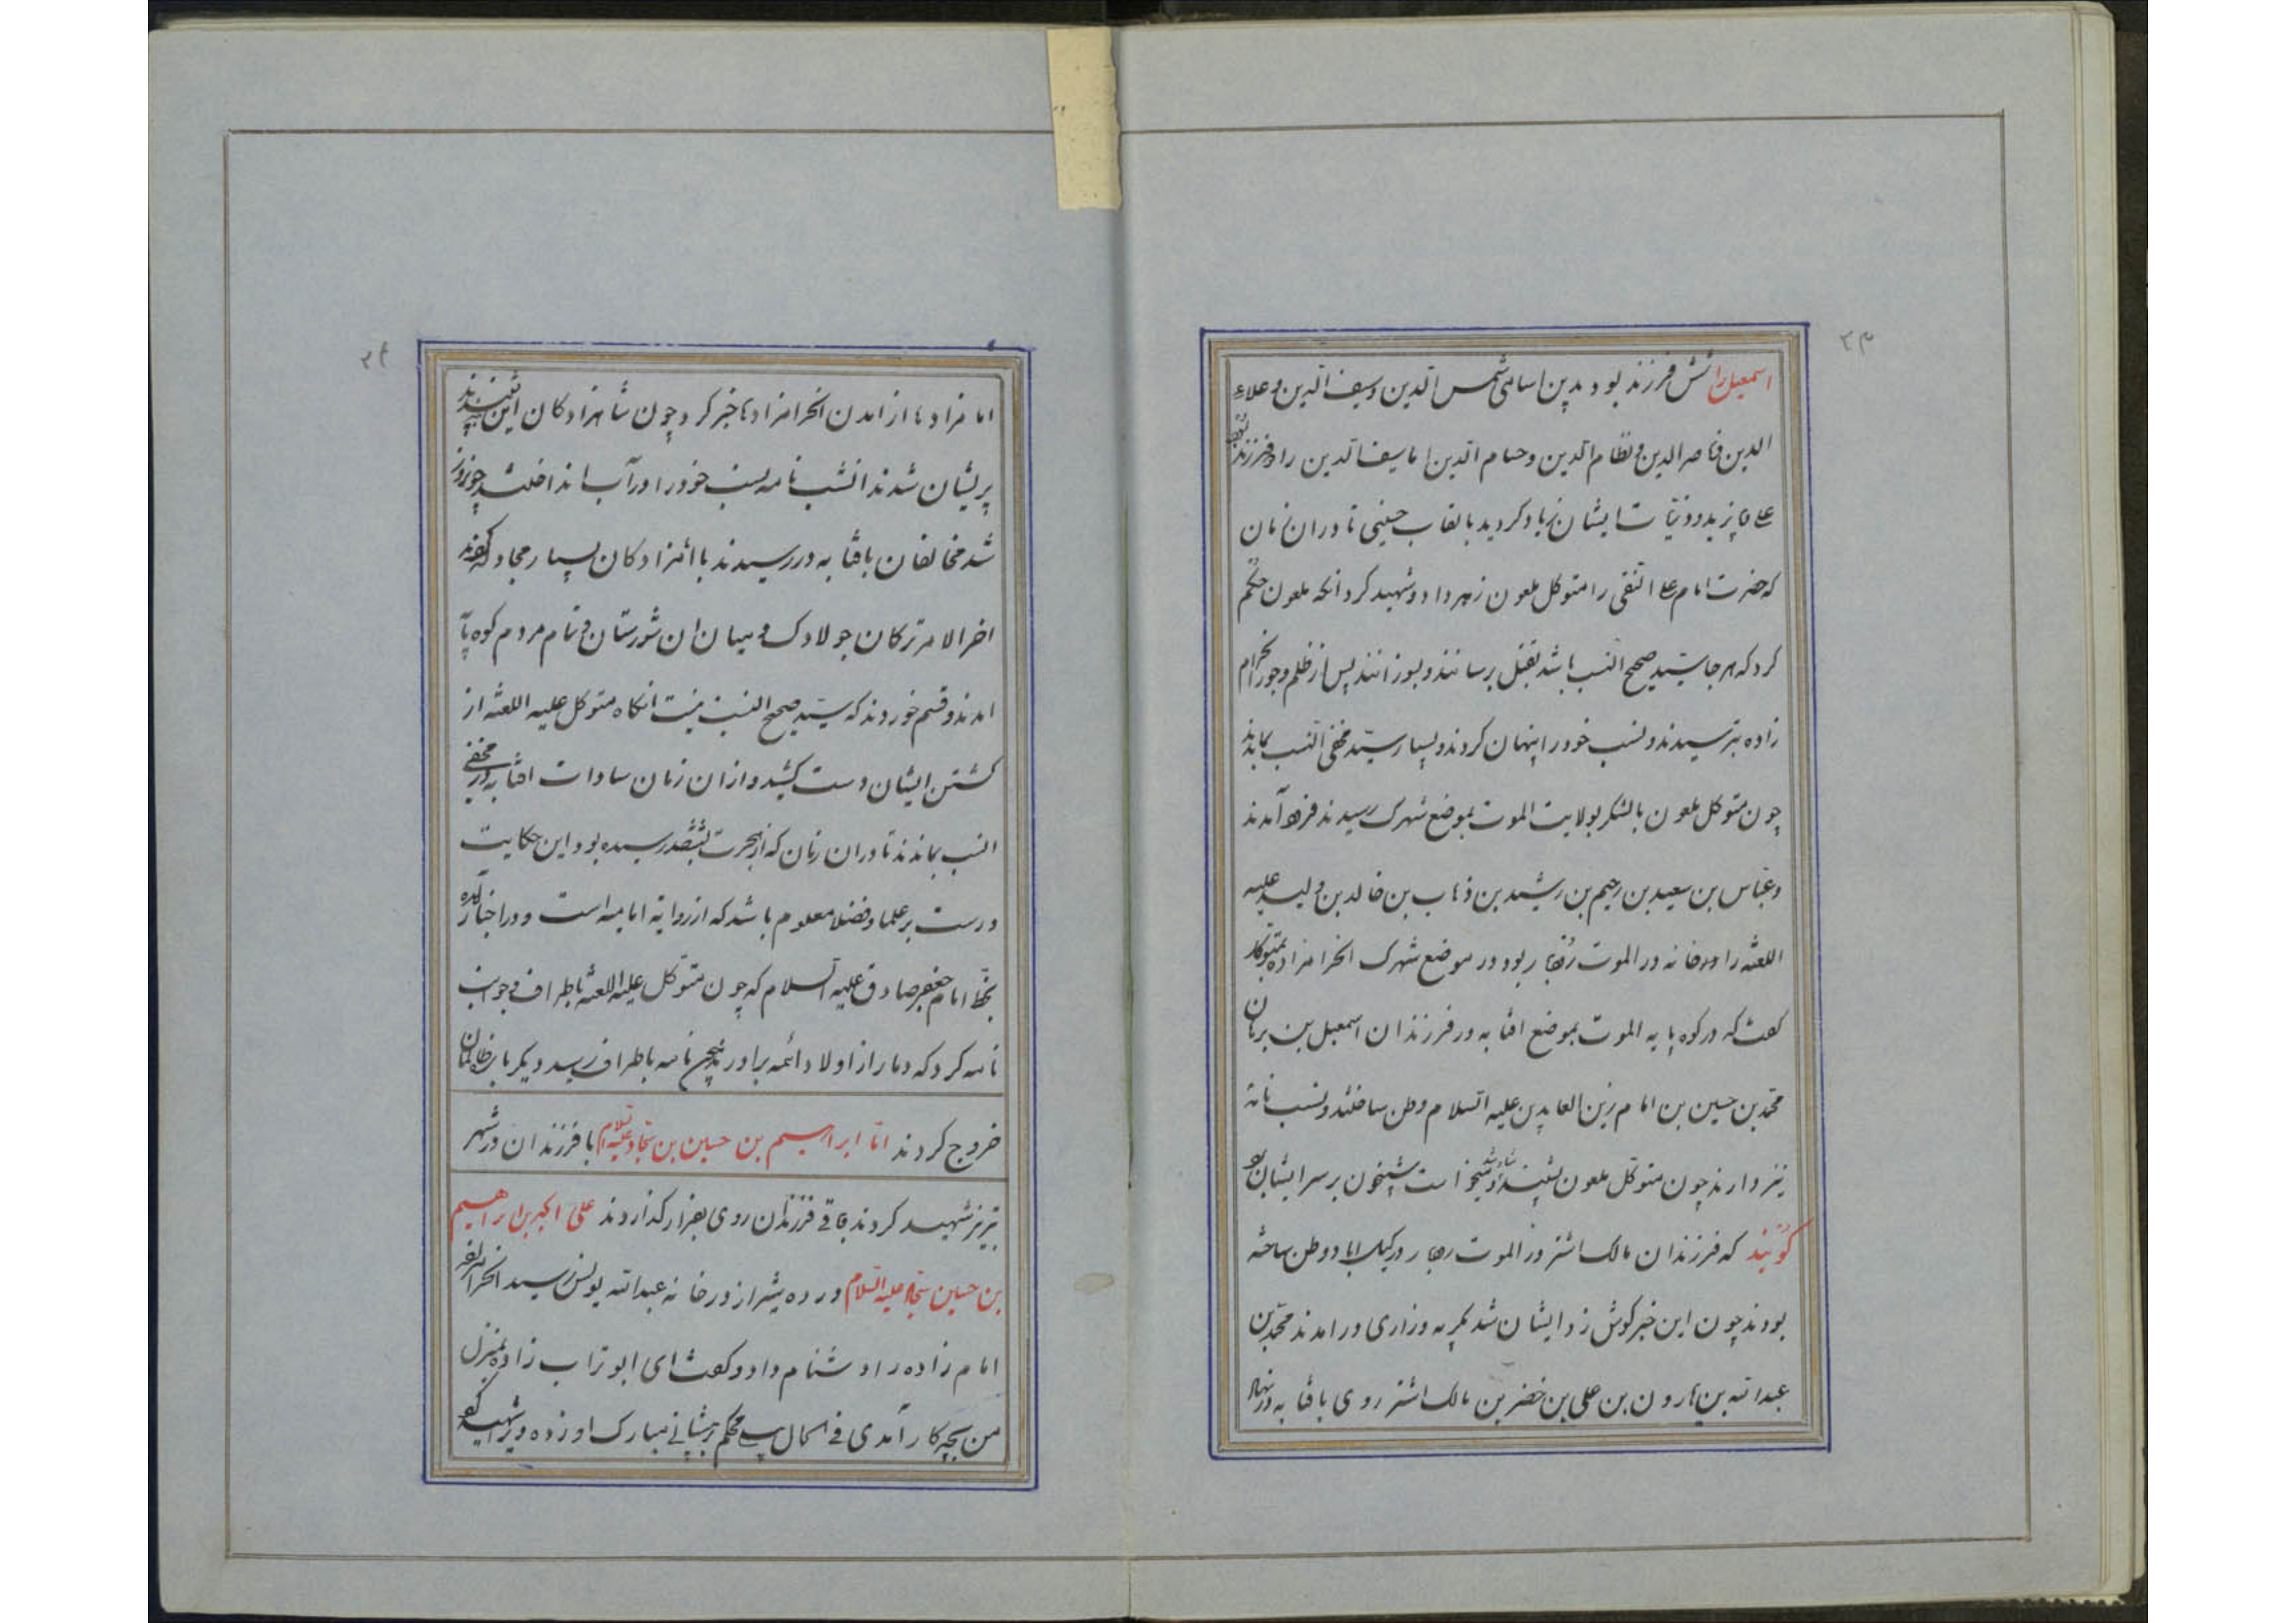 ۲۳
اسمعیل را شش فرزند بود بدین اسامی شمس الدین و سیف الدین و علاء
الدین و ناصر الدین و نظام الدین و حسام الدین اما سیف الدین را دو فرزند بود
علی و با یزید و ذریّات ایشان زیاد کردید بالقاب حسینی تا دوران زمان
که حضرت امام علی النقی را متوکل ملعون زهر داد و شهید کرد انکه ملعون حکم
کرد که هر جا سیّد صحیح النسب باشد بقتل برسانند و بسوزانند پس از ظلم و جور انحرام
زاده بترسیدند و نسب خود را پنهان کردند و بسیار سیّد مخفی النسب بماندند
چون متوکل ملعون بالشکر بولایت الموت بموضع شهرک رسیدند فرود آمدند
و عبّاس بن سعید بن رحیم بن رشید بن ذهاب بن خالد بن ولید علیه
اللعنه را در خانه در الموت رودبار بود در موضع شهرک انحرامزاده بمتوکل
کفت که در کوه پایه الموت بموضع افتابه در فرزندان اسمعیل بن برهان
محمّد بن حسین بن امام زین العابدین علیه السلام وطن ساختند و نسب نامه
نیز دارند چون متوکل ملعون بشنید شاد شد میخواست شبیخون بر سر ایشان برد
کویند که فرزندان مالک اشتر در الموت رودبار در کیک اباد وطن ساخته
بودند چون این خبر کوش زد ایشان شد بکریه و زاری در امدند محمّد بن
عبدالله بن هارون بن علی بن خضر بن مالک اشتر روی بافتابه در نهاد
۲۴
امامزادها از امدن انحرامزادها خبر کرد چون شاهزادکان این شنیدند
پریشان شدند انشب نامه نسب خود را در آب انداختند چون روز
شد مخالفان بافتابه در رسیدند با امزادکان بسیار مجادله کردند
اخرالامر ترکان جولادک و میان ان شورستان و تمام مردم کوه پایه
امدند و قسم خوردند که سیّد صحیح النسب نیست انکاه متوکل علیه اللعنه از
کشتن ایشان دست کشید و از ان زمان سادات افتابه در مخفی
النسب بماندند تا دران زمان که از هجرت بششصد رسیده بود و این حکایت
درست بر علما و فضلا معلوم باشد که از روایه امامیه است و در اخبار آمده
بخط امام جعفر صادق علیه السلام که چون متوکل علیه اللعنه باطراف و جوانب
نامه کرد که دمار از اولاد ائمه براورند چون نامه باطراف رسید دیکر بار ظالمان
خروج کردند امّا ابراهیم بن حسین بن سجّاد علیه السلام با فرزندان در شهر
تبریز شهید کردند باقی فرزندان روی بفرار کذاردند علی اکبر بن ابراهیم
بن حسین سجّاد علیه السلام در ده شیراز در خانه عبدالله یونس رسید انحرامزاده
امام زاده را دشنام داد و کفت ای ابوتراب زاده بمنزل
من بچه کار آمدی فی الحال بیلی محکم بر پیشانی مبارک او زده و ویرا شهید کرد